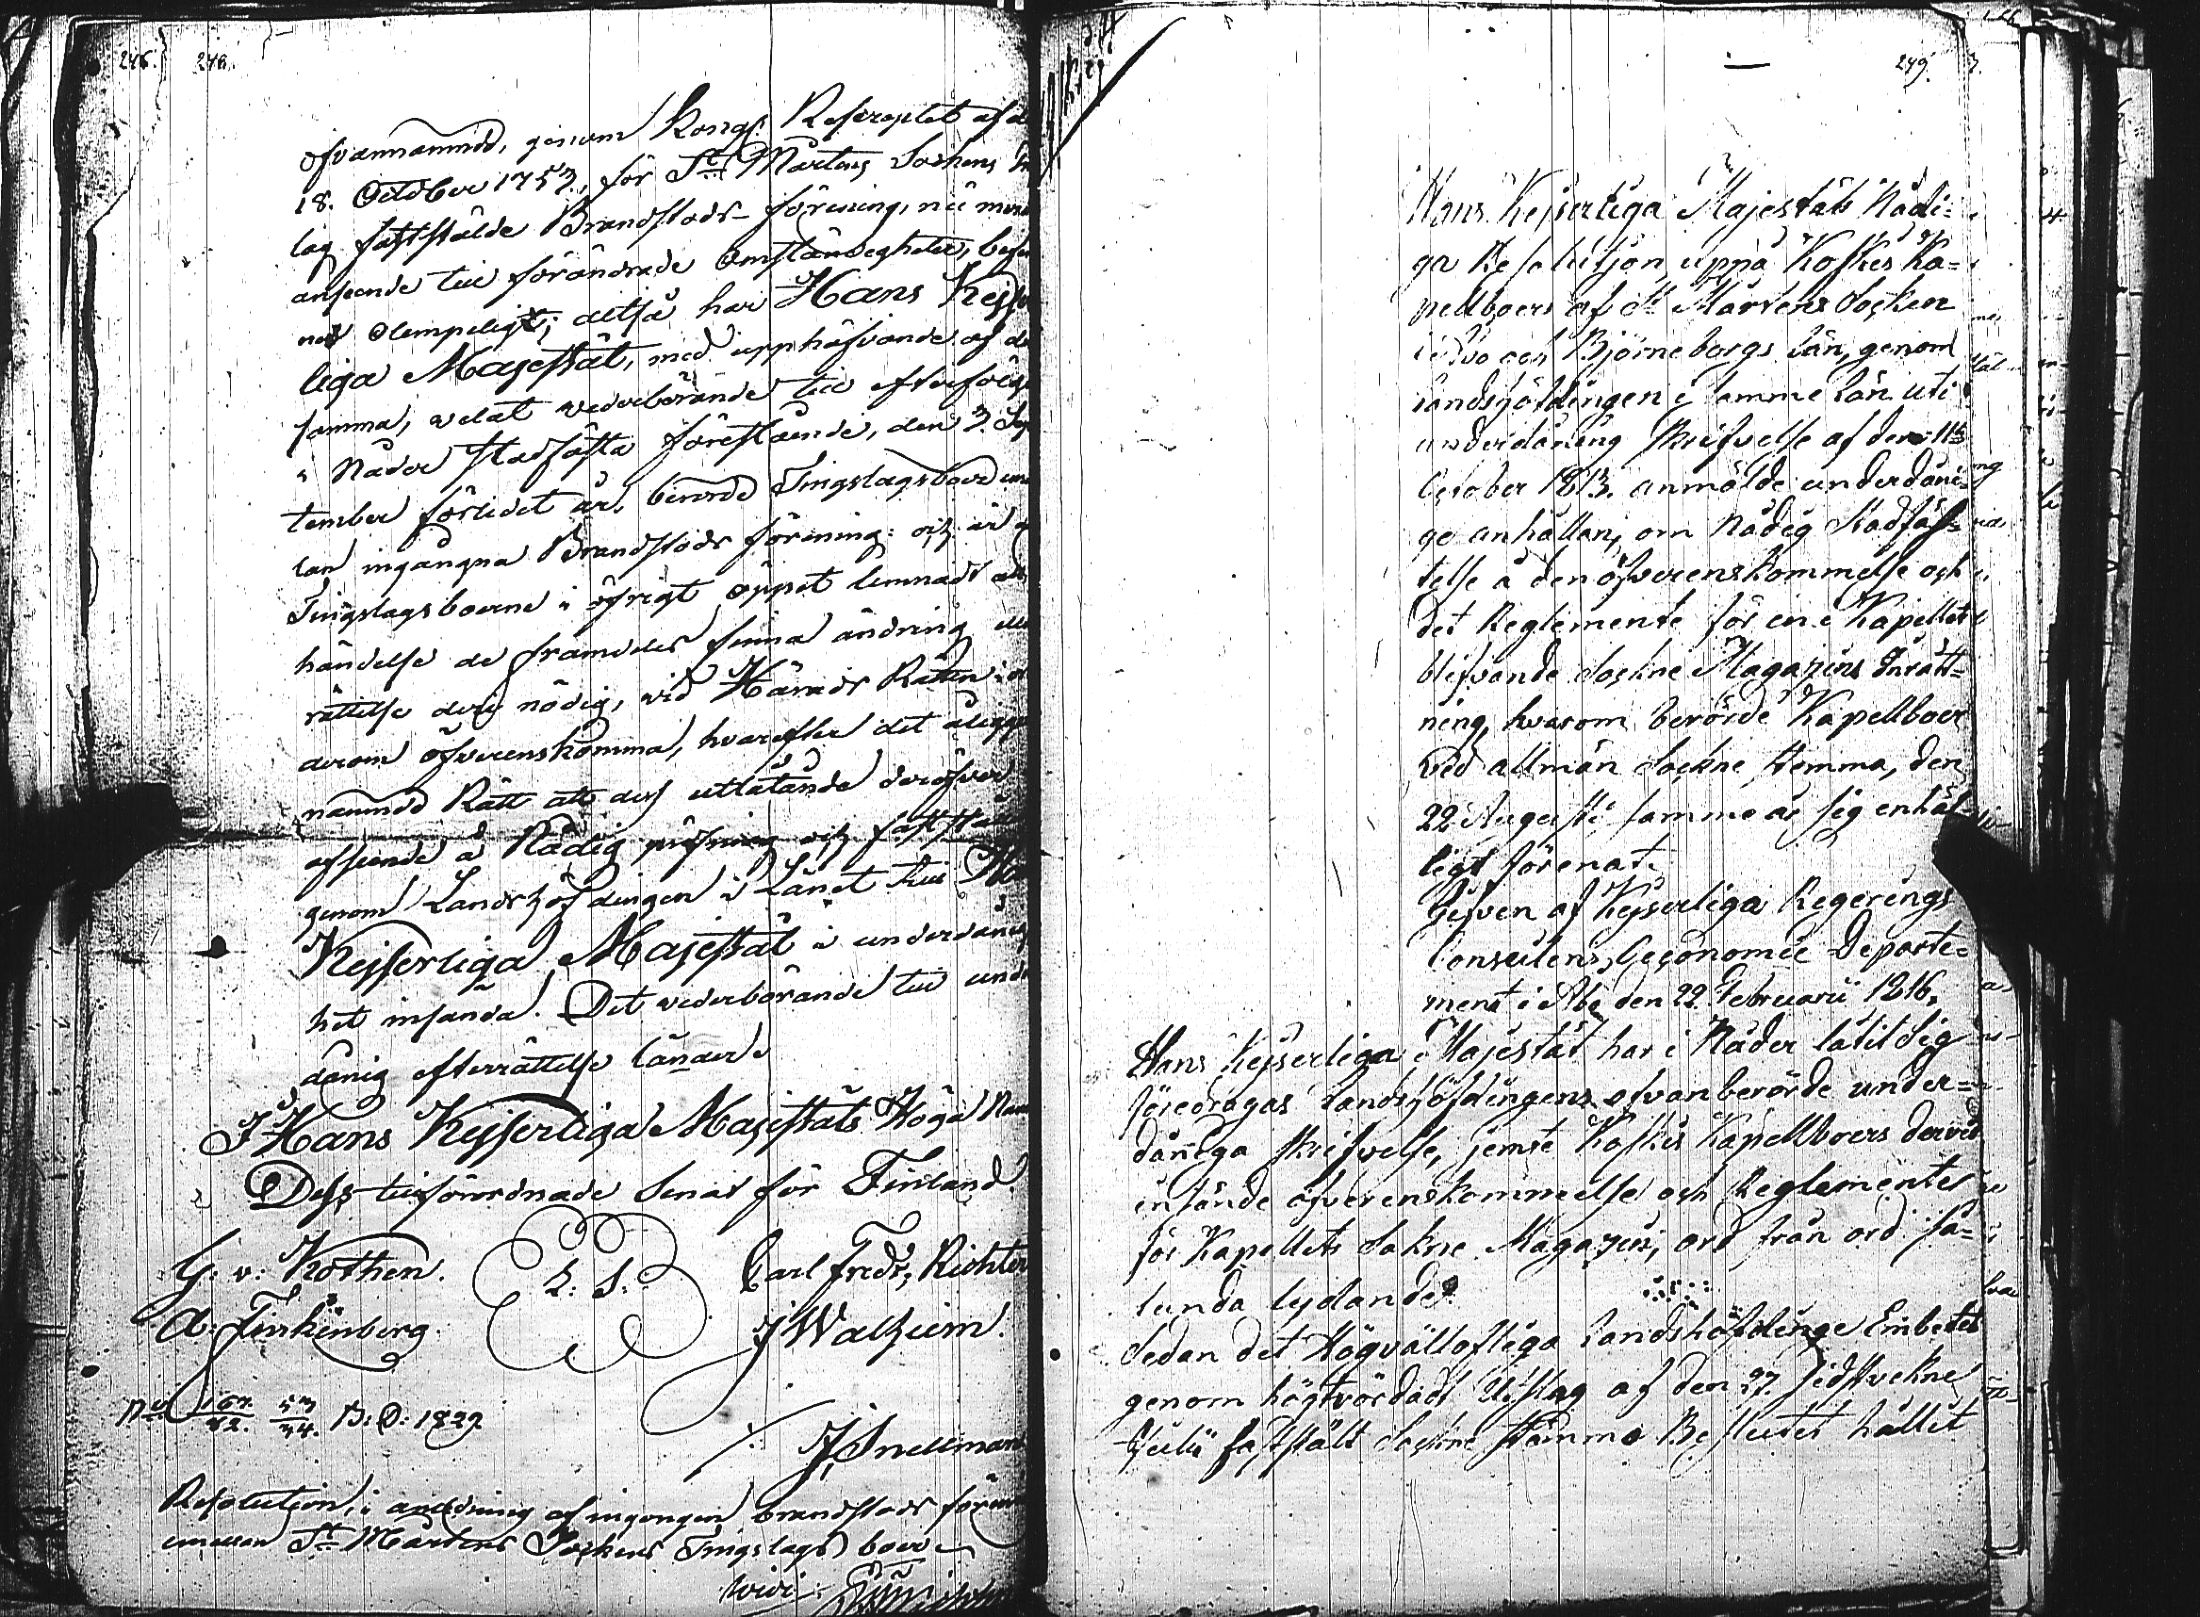 246. 248.
ofvannämnd, genom Kongl. Rescriptet af d
18. October 1753, för S:t Mårtens Sockens
lag fastställde Brandstods-förening, nu mera
anseende till förändrade omständigheter, befun
nits olämpelig; altså har Hans Kejser
liga Majestät, med upphäfvande af den
samma, velat vederbörande till efterföljd
i Nåder stadfästa förestående, den 3. Sep
tember förledet år, berörde Tingslagsboer emel
lan ingångna Brandstods förening: och är
Tingslagsboerne i öfrigt öppet lemnadt att
händelse de framdeles finna ändring eller
rättelse deri nödig, vid Härads Rätten
derom öfverenskomma, hvarefter det åligger
nämnd Rätt att dess utlåtande deröfver
afseende å Nådig pröfning och fastställ
genom Landshöfdingen i Länet till Ha
Kejserliga Majestät i underdånig
het insända. Det vederbörande till under
dånig efterrättelse länder.
I Hans Kejserliga Majestäts Höga Namn
Dess tillförordnade Senat för Finland.
G. v. Kothen. L. S. Carl Fredr. Richter
A. Finkenberg. J Walheim.
N:o 167/42. 53/34. B: D: 1829.
J. Snellman
Resolution, i anledning af ingången brandstods fören
emellan S:t Mårtens Sockens Tingslags boer
249.
Hans Kejserliga Majestäts Nådi=
ga Resolution uppå Koskis Ka=
pellboers af S:t Mårtens Socken
i Åbo och Björneborgs Län, genom
Landshöfdingen i samme Län uti
underdånig skrifvelse af den 11
October 1813. anmälde underdåni=
ge anhållan, om Nådig Stadfäs=
telse å den öfverenskommelse och
det Reglemente för en i Kapellet
blifvande Sockne Magazins Inrätt=
ning, hvarom berörde Kapellboer
vid allmän Sockne Stemma, den
22 Augusti samme år sig enhäl
ligt förenat.
Gifven af Kejserliga Regerings
Conseilens Oeconomie Departe=
ment i Åbo den 22 Februarii 1816.
Hans Kejserliga Majestät har i Nåder låtit Sig
föredragas Landshöfdingens ofvanberörde under=
dåniga skrifvelse, jemte Koskis Kapellboers dervid
insände öfverenskommelse och Reglemente
för Kapellets Sokne Magazin, ord från ord så=
lunda lydande:
Sedan det Högvällofliga Landshöfdinge Embetet
genom högtvördadt Utslag af den 27. sidstvekne
Julii fastställt Sockne Stämmo Beslutet hållit